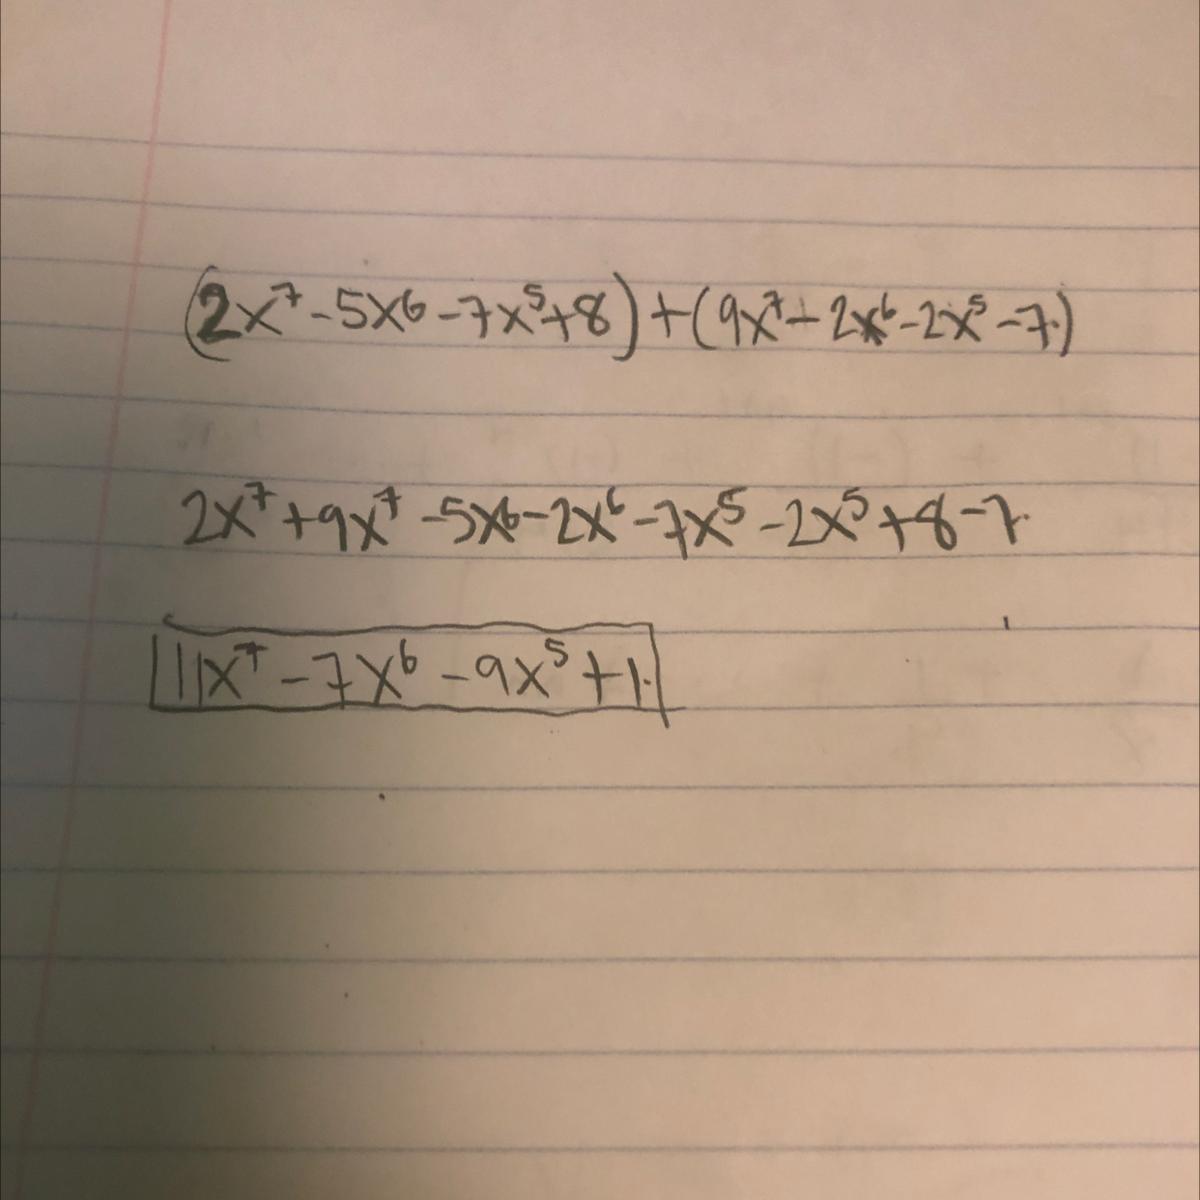 (2x⁷-5x⁶-7x⁵+8)+(9x⁷-2x⁶-2x⁵-7)
2x⁷+9x⁷-5x⁶-2x⁶-7x⁵-2x⁵+8-7
11x⁷-7x⁶-9x⁵+1